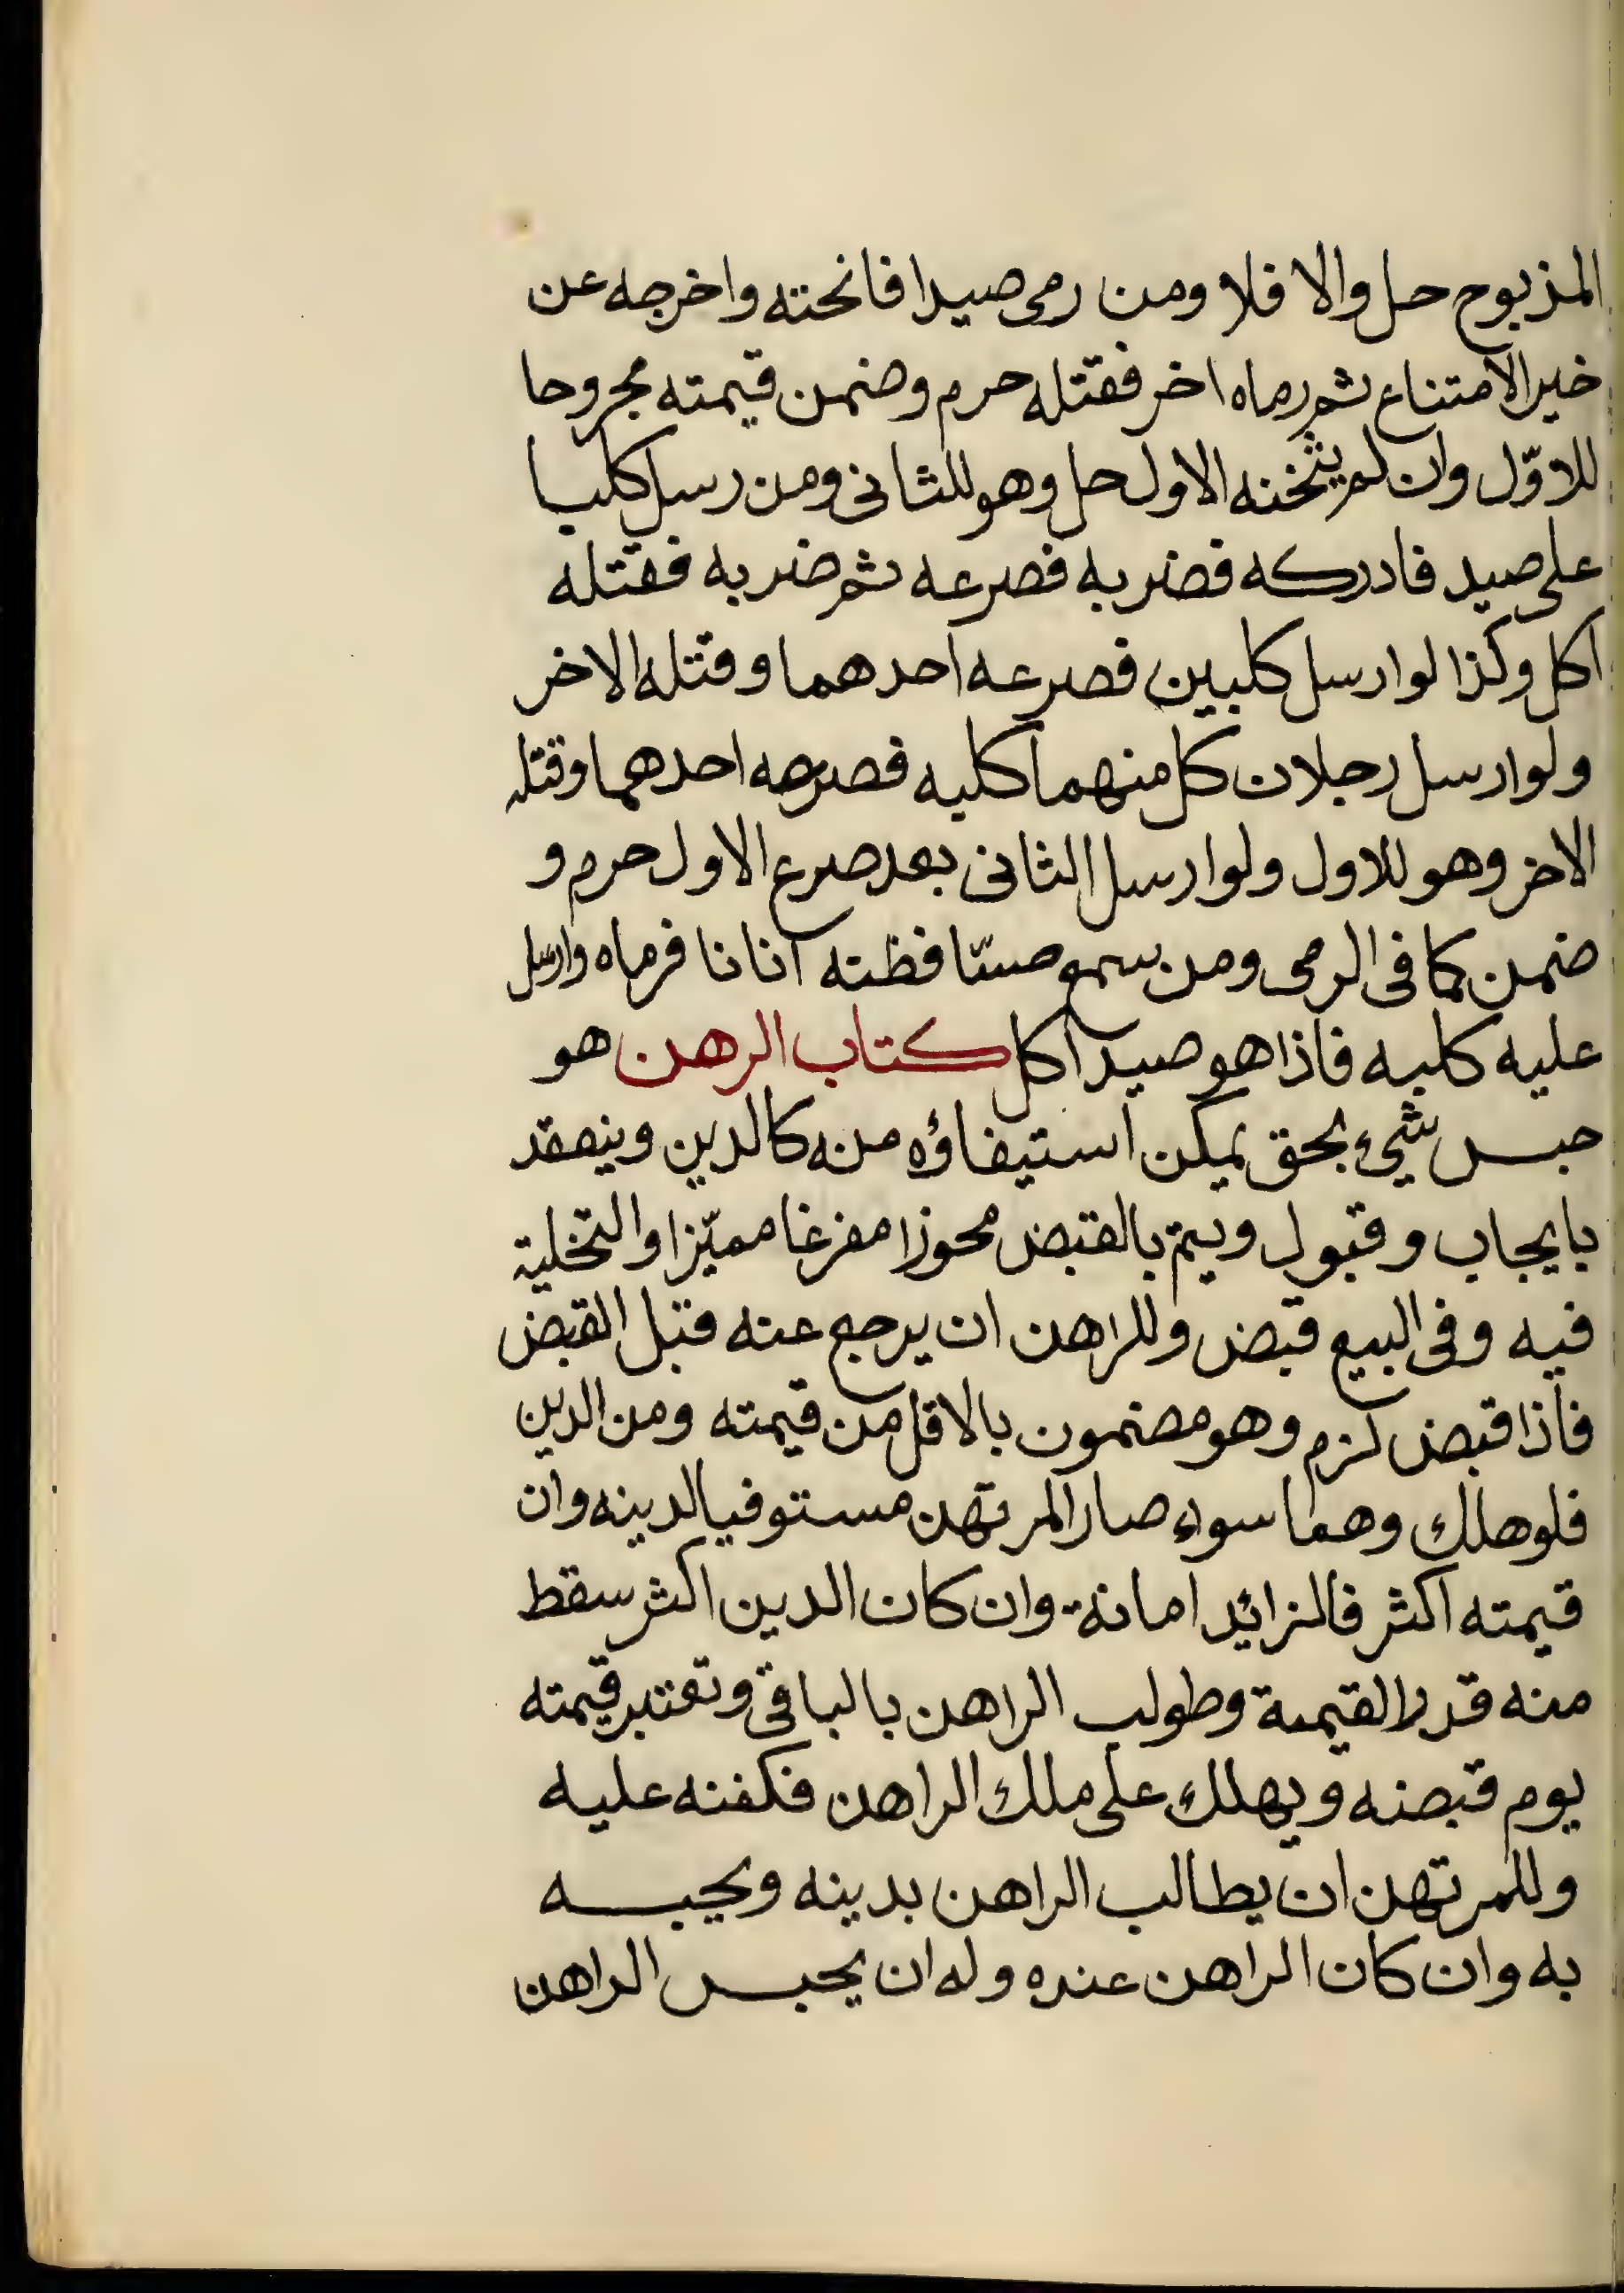 المذبوح حل والا فلا ومن رمى صيدا فانحته واخرجه عن
خير الامتناع ثم رماه اخر فقتله حرم وضمن قيمته مجروحا
للاوّل وان لم يثخنه الاول حل وهو للثانى ومن رسل كلبا
على صيد فادركه فضربه فصرعه ثم ضربه فقتله
اكل وكذا لو ارسل كلبين فصرعه احدهما وقتله الاخر
ولو ارسل رجلان كل منهما كلبه فصرعه احدهما وقتله
الاخر وهو للاول ولو ارسل الثانى بعد صرع الاول حرم و
ضمن كما فى الرمى ومن سمع حسّا فظنه انانا فرماه وارسل
عليه كلبه فاذا هو صيد اكل كتاب الرهن هو
حبس شيء بحق يمكن استيفاؤه منه كالدين وينعقد
بايجاب وقبول ويتم بالقبض محوزا مفرغا مميّزا والتخلية
فيه وفى البيع قبض وللراهن ان يرجع عنه قبل القبض
فاذا قبض لزم وهو مضمون بالاقل من قيمته ومن الدين
فلو هلك وهما سواء صار المرتهن مستوفيا لدينه وان
قيمته اكثر فالزائد امانة وان كان الدين اكثر سقط
منه قدر القيمة وطولب الراهن بالباقى وتعتبر قيمته
يوم قبضه ويهلك على ملك الراهن فكفنه عليه
وللمرتهن ان يطالب الراهن بدينه ويحبسه
به وان كان الراهن عنده وله ان يحبس الراهن